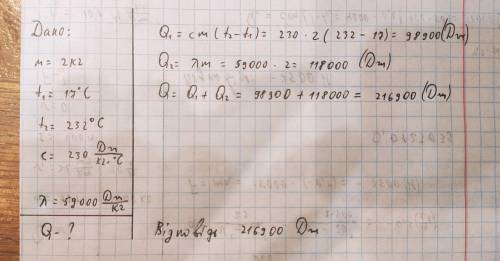 Дано:
m = 2 кг
t₁ = 17°C
t₂ = 232°C
c = 230 Дж/кг·°C
λ = 59000 Дж/кг
Q - ?
Q₁ = cm (t₂-t₁) = 230 · 2 (232 - 17) = 98900 (Дж)
Q₂ = λm = 59000 · 2 = 118000 (Дж)
Q = Q₁ + Q₂ = 98900 + 118000 = 216900 (Дж)
Відповідь 216900 Дж